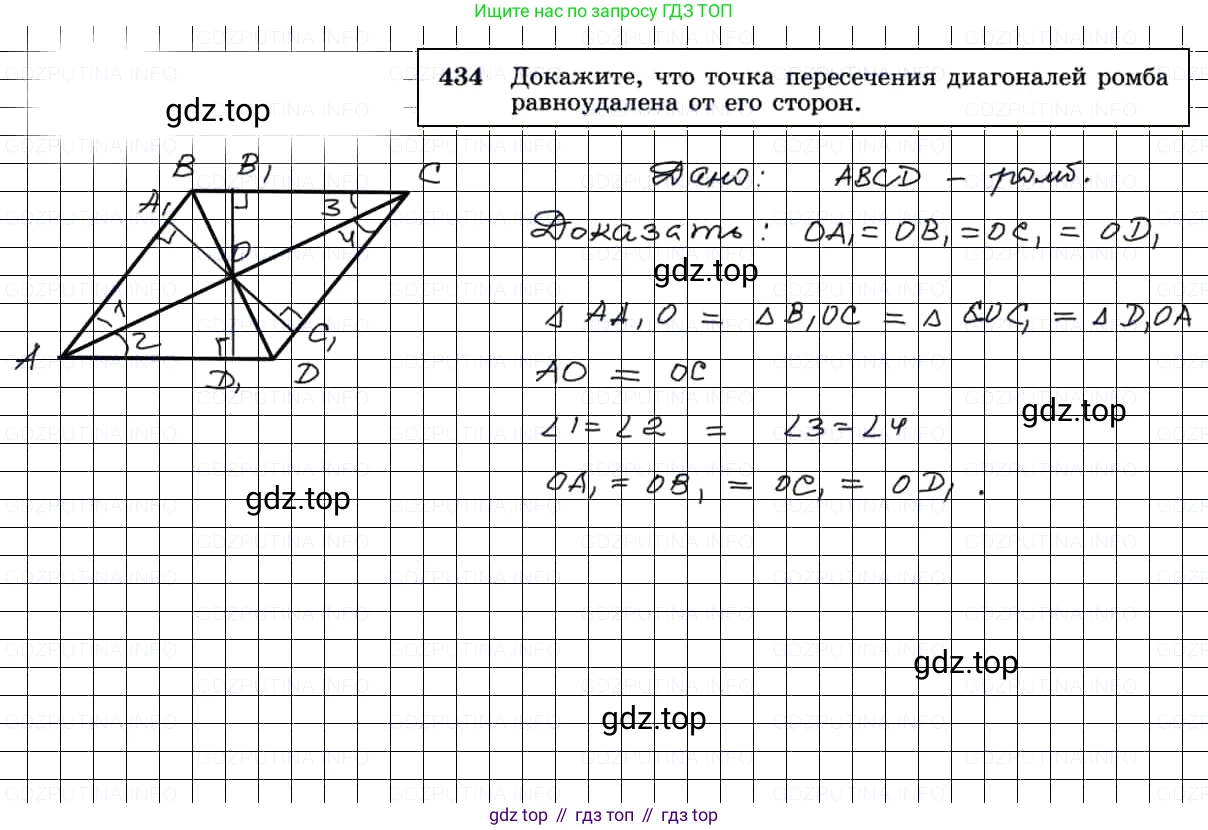 Ищите нас по запросу ГДЗ ТОП
434 Докажите, что точка пересечения диагоналей ромба
равноудалена от его сторон.
gdz.top
B B₁ C
A₁ 3
4
O
1
2
A D₁ D C₁
Дано: ABCD – ромб.
Доказать: OA₁ = OB₁ = OC₁ = OD₁
gdz.top
△ AA₁O = △B₁OC = △ COC₁ = △D₁OA
AO = OC
gdz.top
∠1 = ∠2 = ∠3 = ∠4
OA₁ = OB₁ = OC₁ = OD₁.
gdz.top
gdz.top
gdz.top
gdz top // гдз топ // гдз top
GDZPUTINA.INFO